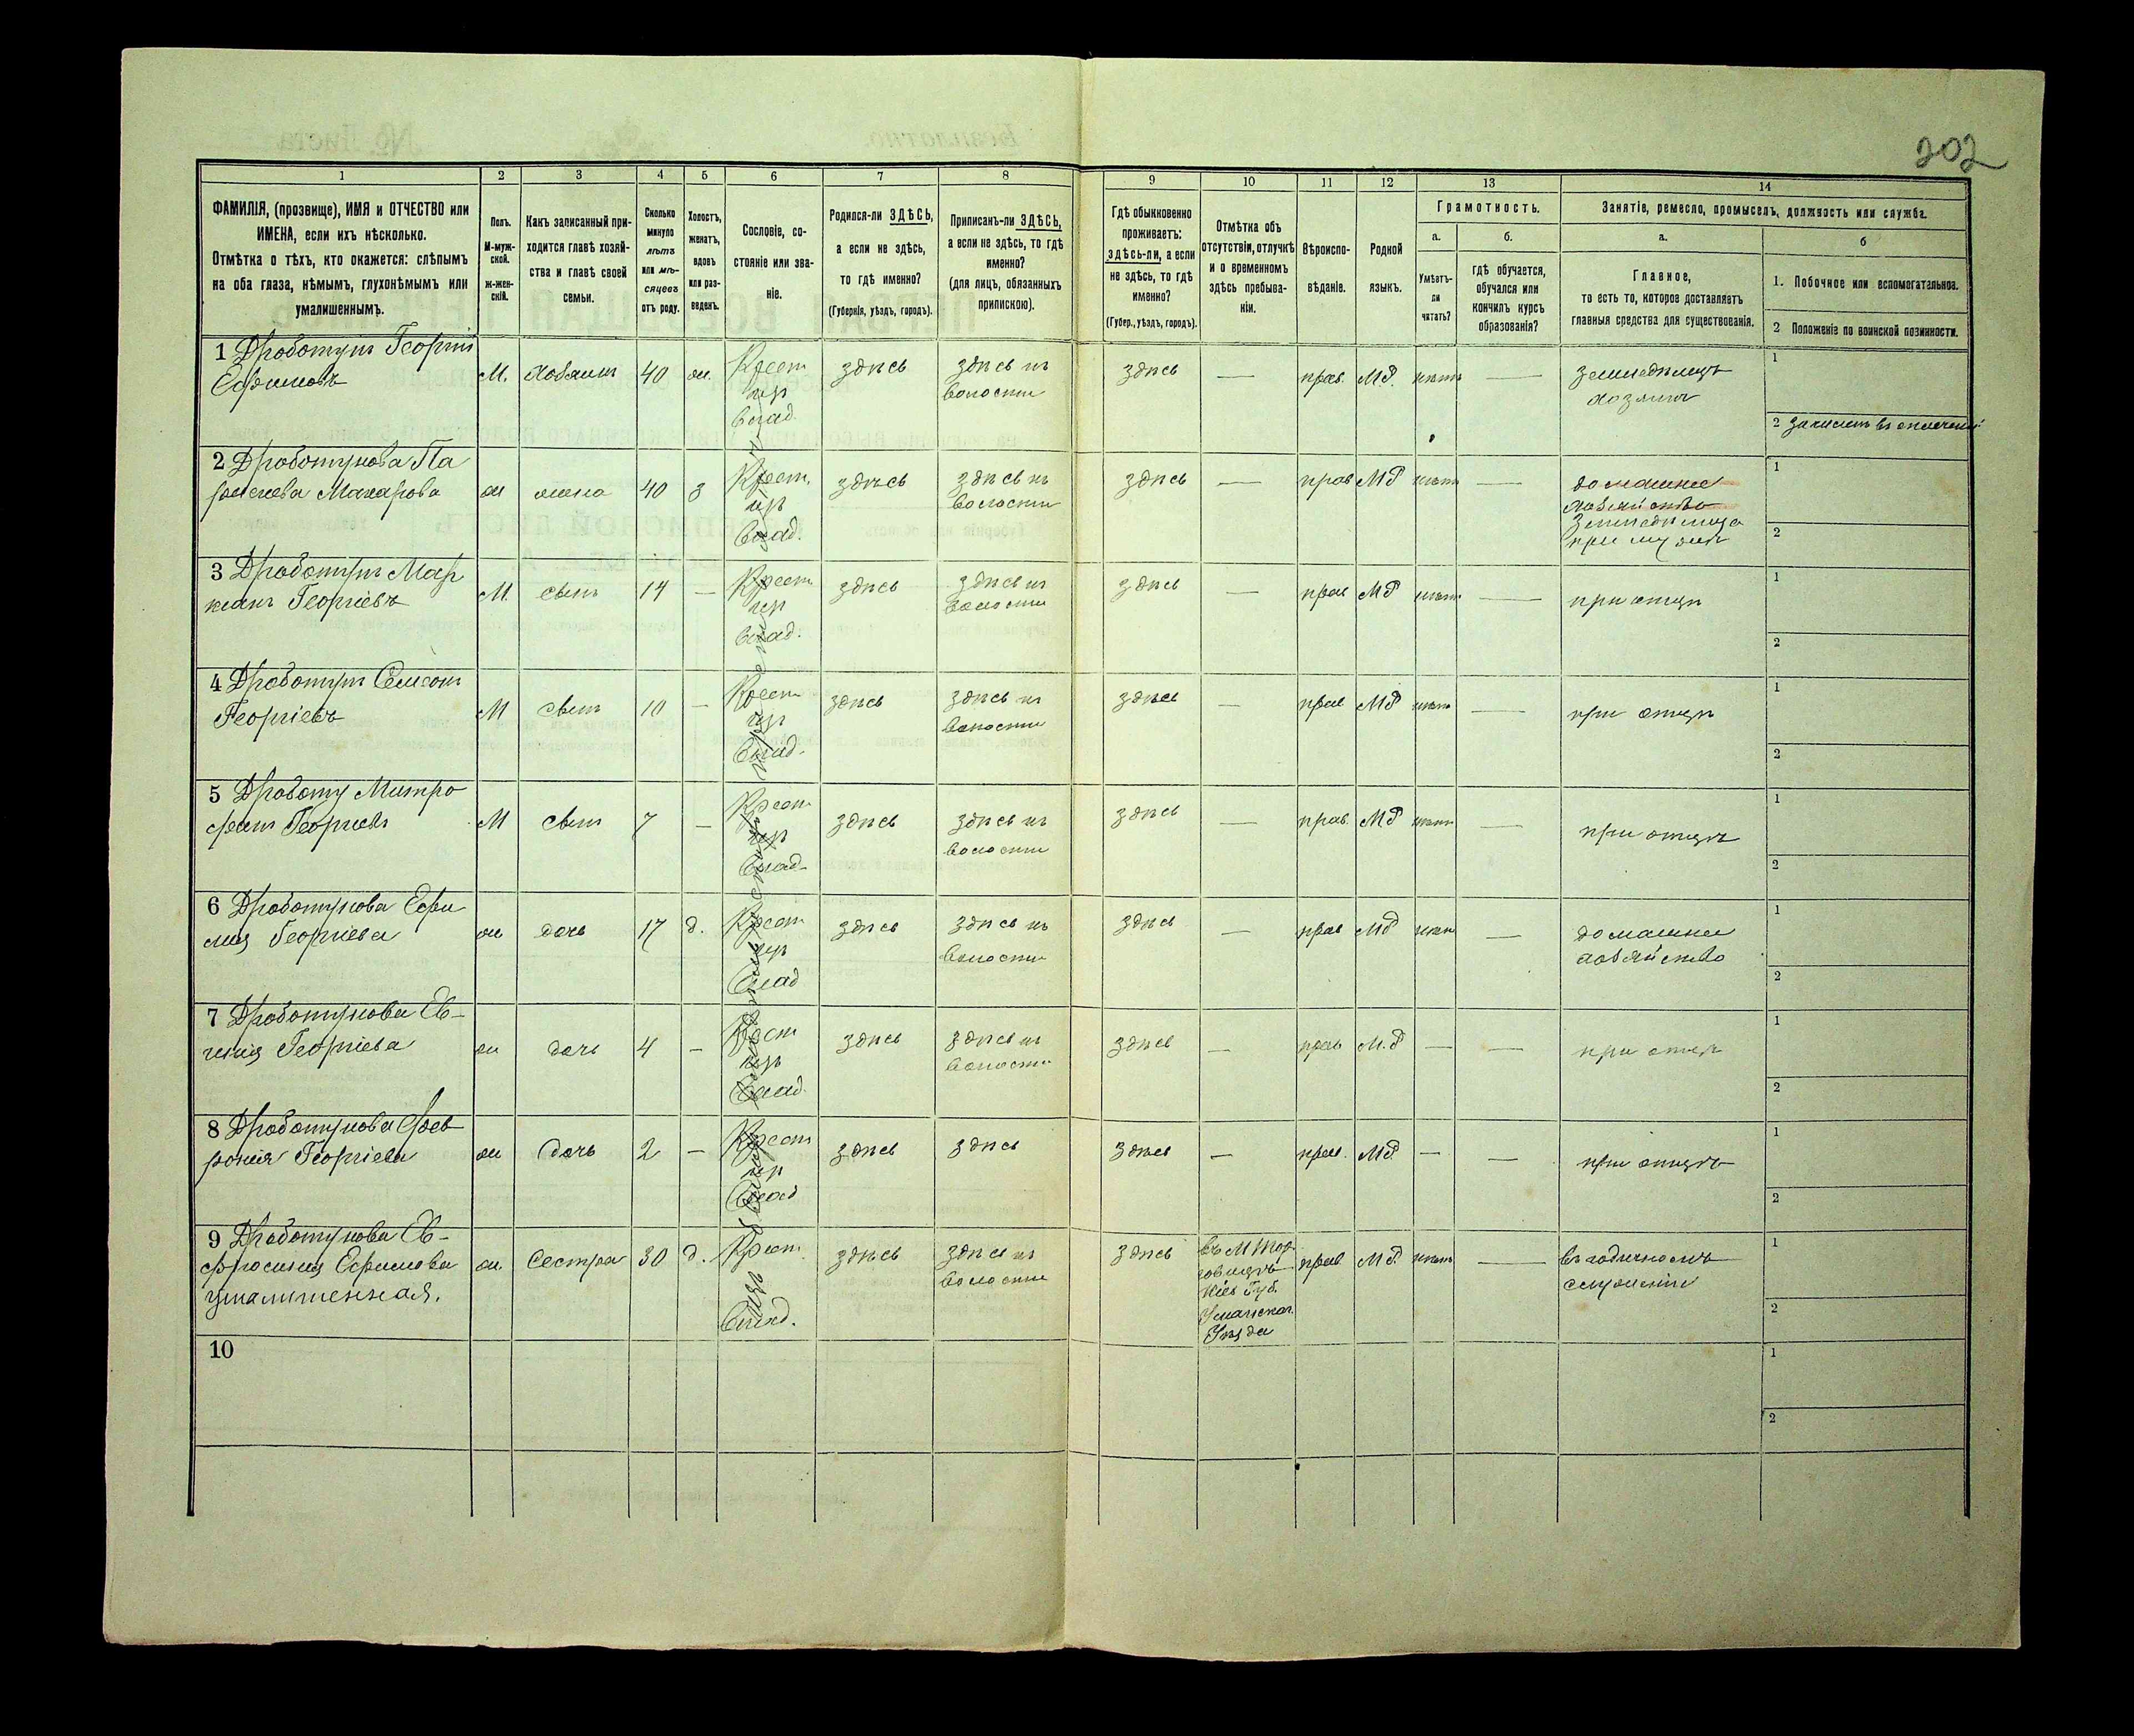 202
1 2 3 4 5 6 7 8 9 10 11 12 13 14
ФАМИЛІЯ, (прозвище), ИМЯ и ОТЧЕСТВО или
ИМЕНА, если ихъ нѣсколько.
Отмѣтка о тѣхъ, кто окажется: слѣпымъ
на оба глаза, нѣмымъ, глухонѣмымъ или
умалишеннымъ.
Полъ.
М-муж-
ской.
ж-жен-
скій.
Какъ записанный при-
ходится главѣ хозяй-
ства и главѣ своей
семьи.
Сколько
минуло
лѣтъ
или мѣ-
сяцевъ
отъ роду.
Холостъ,
женатъ,
вдовъ
или раз-
веденъ.
Сословіе, со-
стояніе или зва-
ніе.
Родился-ли ЗДѢСЬ,
а если не здѣсь,
то гдѣ именно?
(Губернія, уѣздъ, городъ).
Приписанъ-ли ЗДѢСЬ,
а если не здѣсь, то гдѣ
именно?
(для лицъ, обязанныхъ
припискою).
Гдѣ обыкновенно
проживаетъ:
здѣсь-ли, а если
не здѣсь, то гдѣ
именно?
(Губер., уѣздъ, городъ).
Отмѣтка объ
отсутствіи, отлучкѣ
и о временномъ
здѣсь пребыва-
ніи.
Вѣроиспо-
вѣданіе.
Родной
языкъ.
Грамотность.
а.
Умѣетъ-
ли
читать?
б.
гдѣ обучается,
обучался или
кончилъ курсъ
образованія?
Занятіе, ремесло, промыселъ, должность или служба.
а.
Главное,
то есть то, которое доставляетъ
главныя средства для существованія.
б
1. Побочное или вспомагательное.
2 Положеніе по воинской повинности.
1 Дроботунъ Георгій
Ефимовъ
М. хозяинъ 40 ж. Крест. здѣсь здѣсь въ волости здѣсь — прав. М.Р. нѣтъ — земледѣлецъ хозяинъ
1
2
2 Дроботунова Па
раскева Макарова
ж жена 40 з Крест. здѣсь здѣсь въ волости здѣсь — прав М Р нѣтъ — домашнее хозяйство
при мужѣ
1
2
3 Дроботунъ Мар
кіанъ Георгіевъ
М. сынъ 14 — Крест здѣсь здѣсь въ волости здѣсь — прав М Р нѣтъ — при отцѣ
1
2
4 Дроботунъ Самсонъ
Георгіевъ
М сынъ 10 — Крест здѣсь здѣсь въ волости здѣсь — прав М Р нѣтъ — при отцѣ
1
2
5 Дроботу Митро
фанъ Георгіевъ
М сынъ 7 — Крест здѣсь здѣсь въ волости здѣсь — прав. М Р нѣтъ — при отцѣ
1
2
6 Дроботунова Ефи
мія Георгіева
ж дочь 17 д. Крест здѣсь здѣсь въ волости здѣсь — прав М Р нѣтъ — домашнее хозяйство
1
2
7 Дроботунова Ев-
генія Георгіева
ж дочь 4 — Крест здѣсь здѣсь въ волости здѣсь — прав М.Р — — при отцѣ
1
2
8 Дроботунова Фев
ронія Георгіева
ж дочь 2 — Крест здѣсь здѣсь здѣсь — прав. М Р. — — при отцѣ
1
2
9 Дроботунова Ев-
фросинія Ефимова
умалишенная.
ж. сестра 30 д. Крест. здѣсь здѣсь въ волости здѣсь
въ М Тор-
говицѣ
Кіев Губ.
Уманскаг.
Уѣзда
прав. М Р. нѣтъ — въ годичномъ служеніи
1
2
10
1
2